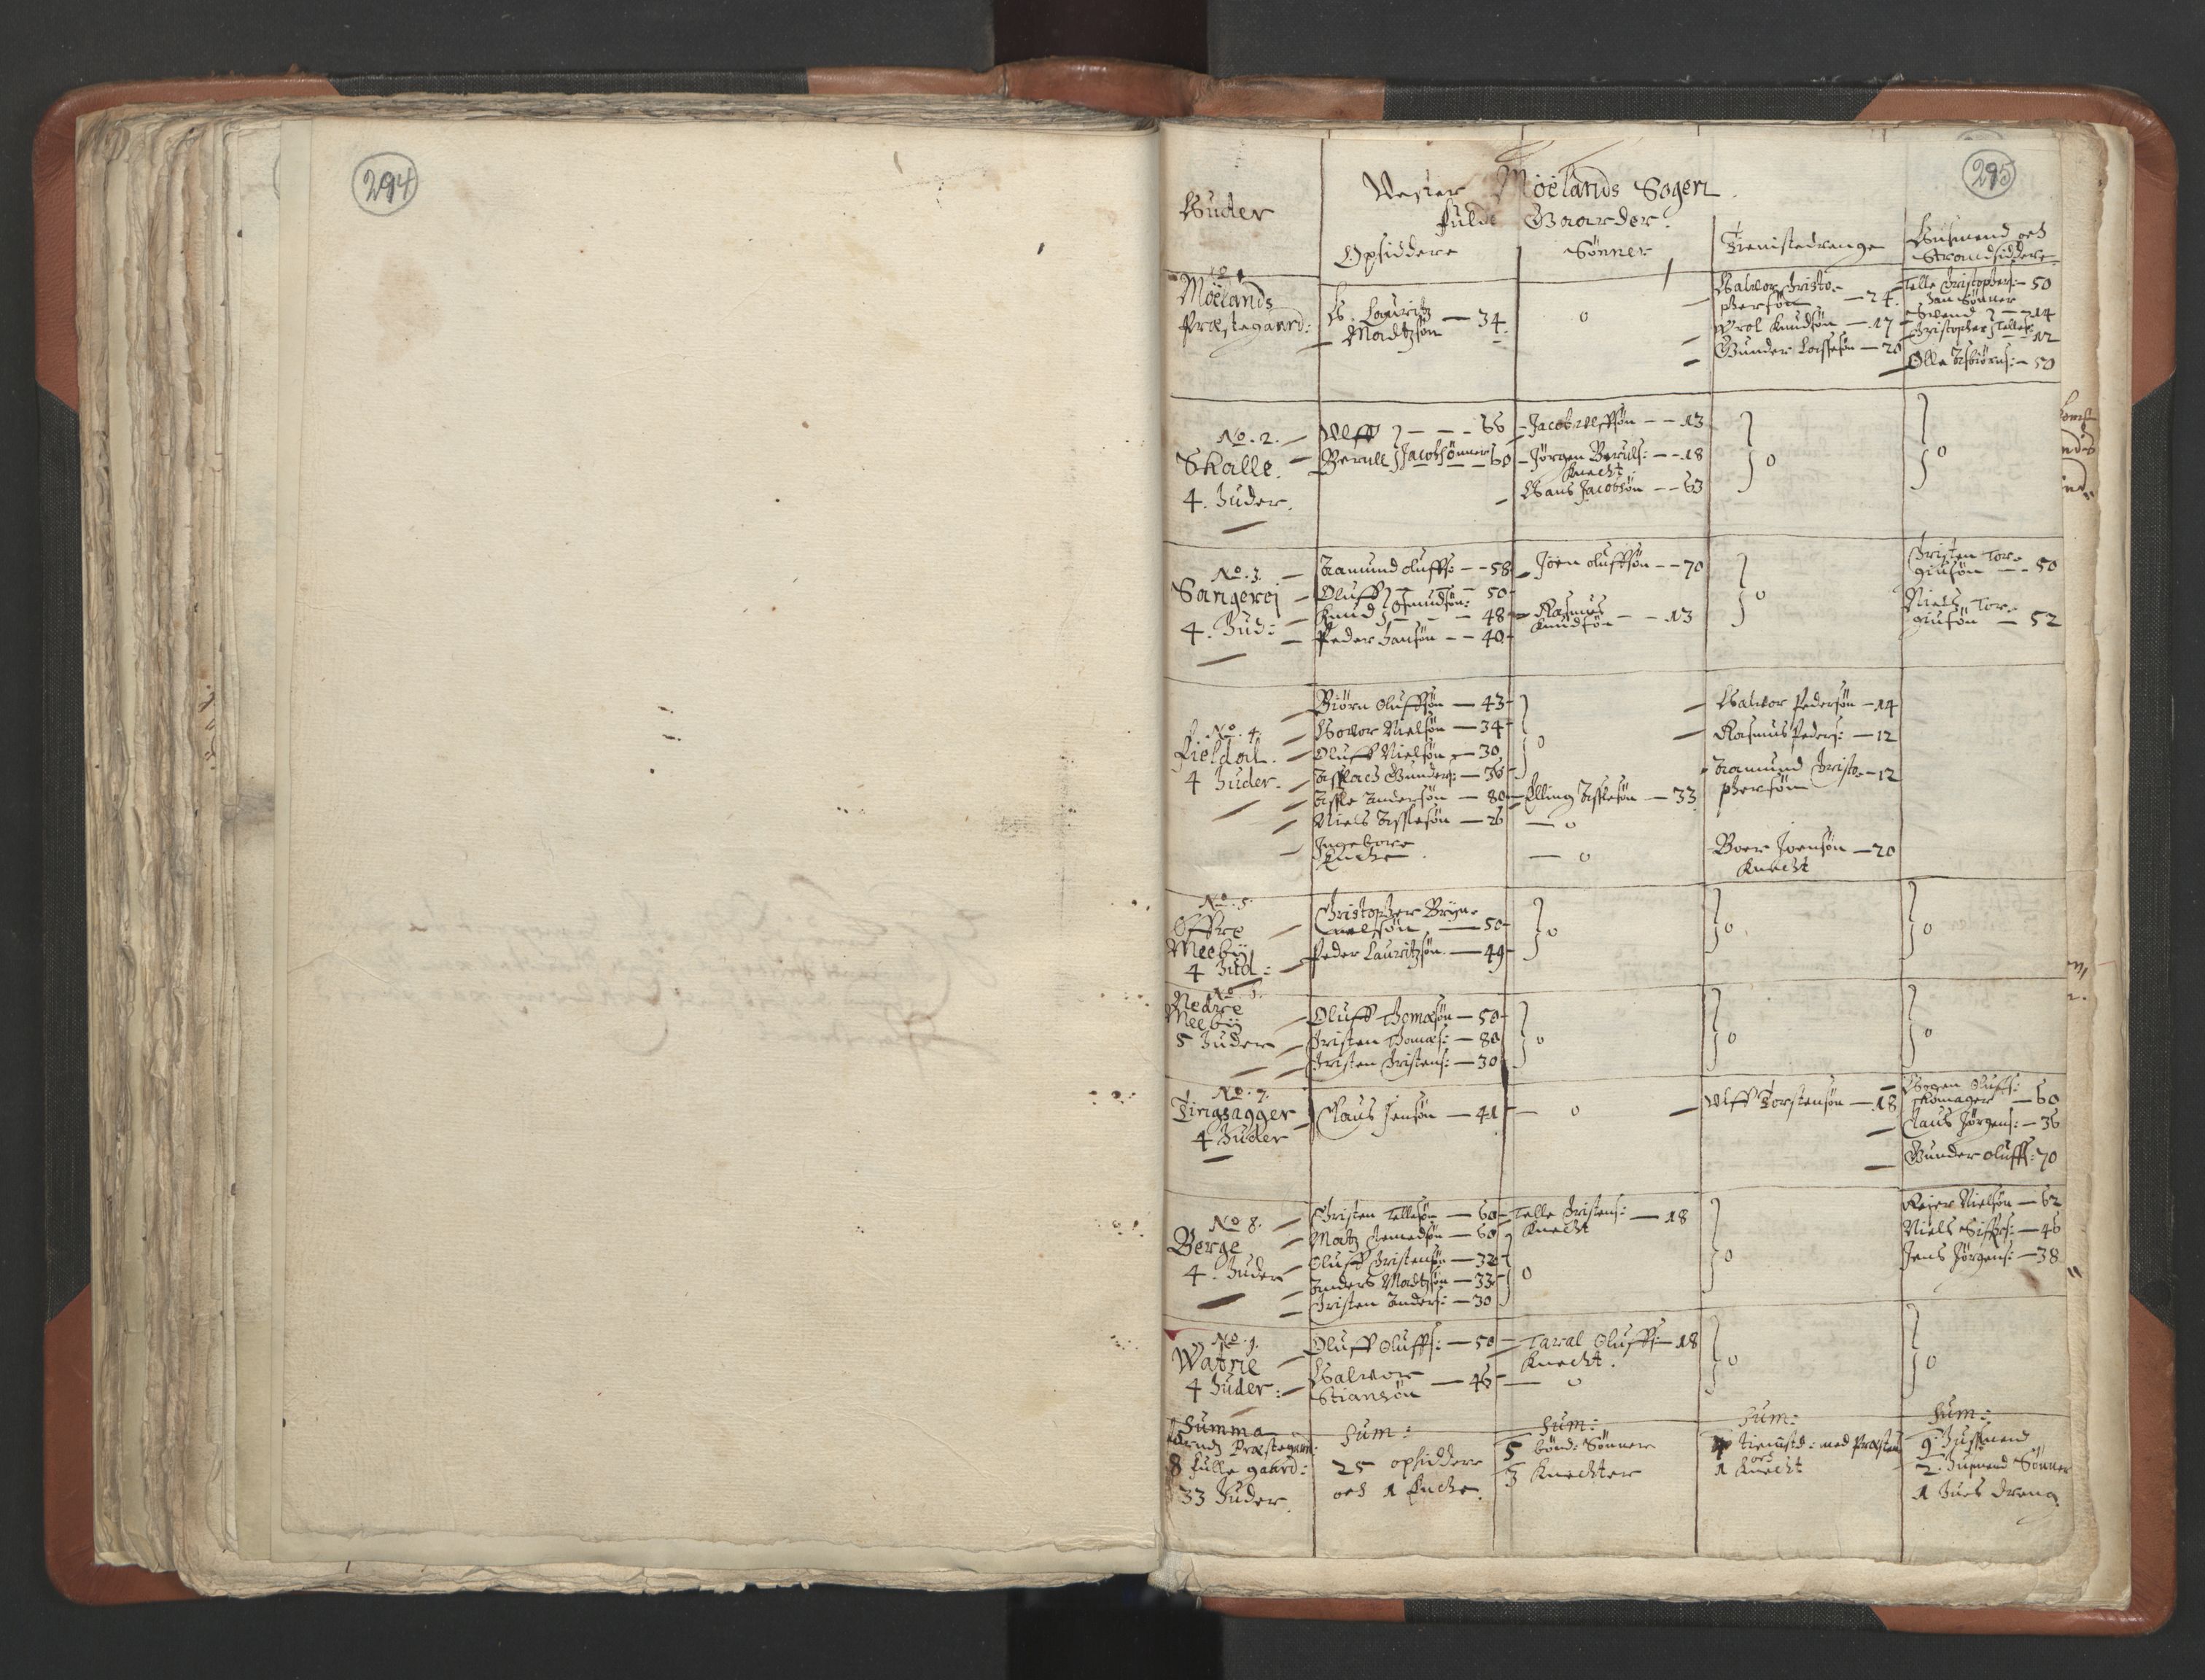 294
295
Huder
Vester Moëlands Sogen
fulde Gaarder.
Opsiddere
Sønner
Tienistedrenge
Husmend och
Strandsiddere
No 1
Moëlands
Præstegaard:
H. Lauritz
Madtzsøn — 34
0
Halvor Christo-
phersøn — 24.
Knudsøn — 17
Gunder Lassesøn — 20
Telle Christophers: — 50
Svend — 14
Christopher Telles: — 12
Olle Asbiørns: — 50
No. 2.
Skalle
4. Huder.
Ulff — 66
Berull Jacobsønner 60
Jacob Ulffsøn — 13
Jørgen Beruls: — 18
Knecht
Hans Jacobsøn — 63
0
0
No. 3.
Sangerej
4. Hud:
Aamund Oluffs: — 58
Oluff — 50
Knud Omundsøn: — 48
Peder Hansøn — 40
Joen Oluffsøn — 70
Rasmus
Knudsøn — 13
0
Christen Tor-
giusøn — 50
Niels Tor-
giusøn — 52
No. 4.
Fieldal.
4 Huder.
Biørn Oluffsøn — 43
Hovor Nielsøn — 34
Oluff Nielsøn — 30
Asslach Gunders: — 36
Assle Andersøn — 80
Niels Asslesøn — 26
Ingebore
Encke
0
Elling Asslesøn — 33
0
0
Halvor Pedersøn — 14
Rasmus Peders: — 12
Aamund Christo-
phersøn — 12
Boer Joensøn — 20
Knecht
No. 5.
Øffre
Meebÿ
4 Hud:
Christopher Bryn-
nelsøn — 50
Peder Lauritzsøn — 49
0
0
0
No. 6.
Nedre
Meebÿ
5 Huder
Oluff Thomæsøn — 50
Christen Thomæs: — 80
Christen Christens: — 30
0
0
0
No. 7.
Tingsagger
4 Huder
Claus Jensøn — 41
0
Ulff Torstensøn — 18
Oluffs:
Skomager — 60
Claus Jørgens: — 36
Gunder Oluffs: 70
No 8.
Berge
4. Huder
Christen Tellesøn — 60
Matz — 60
Oluff Christensøn — 32
Anders Madtzsøn — 33
Christen Anders: — 30
Telle Christens: — 18
Knecht
0
0
Reier Nielsøn — 62
Niels — 46
Jens Jørgens: — 38
No. 9.
Watne
4 Huder:
Oluff Oluffs: — 50
Halvor
Stiansøn — 46
Taral Oluffs: — 18
Knecht.
0
0
0
Summa
Præstegaar:
8 fulle gaard:
33 Huder.
Sum:
25 opsiddere
och 1 Encke.
Sum:
5 bønd: Sønner
3 Knechter
Sum:
tienistd: med Præstens
och
1 Knecht
Sum:
9 Husmend
2. Husmend Sønner
1 Hues dreng